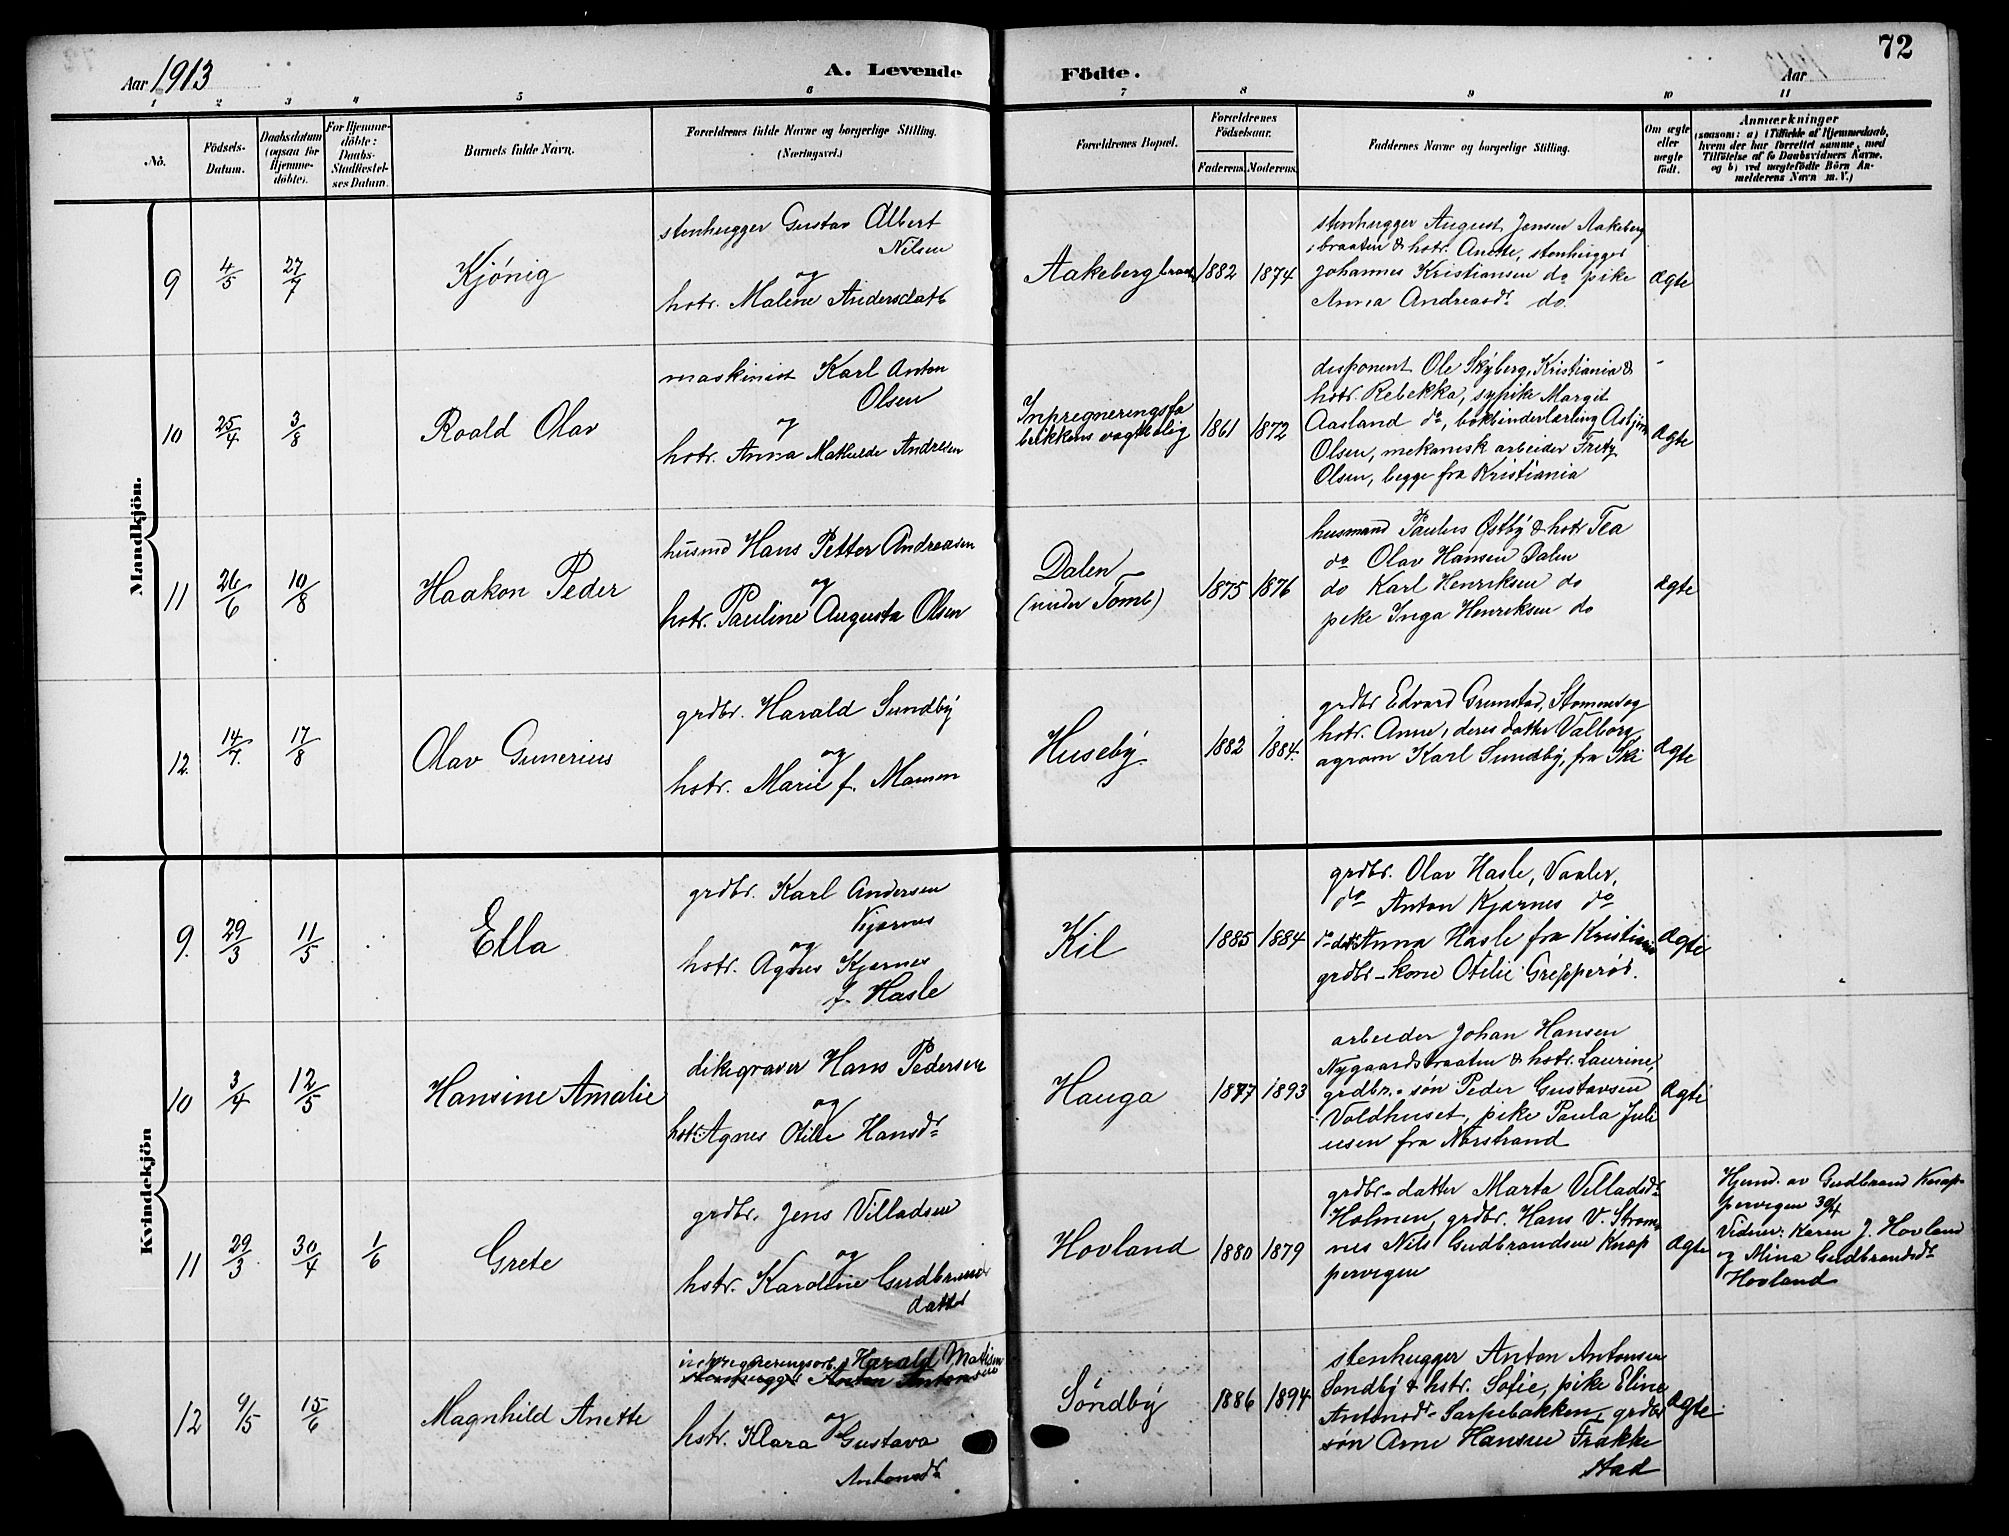 72
Aar 1913
A. Levende
Födte.
Aar
1 2 3 4 5 6 7 8 9 10 11
No.
Födsels-
Datum.
Daabsdatum
(ogsaa for
Hjemme-
döbte).
For Hjemme-
döbte:
Daabs-
Stadfæstel-
ses Datum.
Barnets fulde Navn.
Forældrenes fulde Navne og borgerlige Stilling.
(Næringsvei.)
Forældrenes Bopæl.
Forældrenes
Födselsaar.
Faderens. Moderens.
Faddernes Navne og borgerlig Stilling.
Om ægte
eller
uægte
födt.
Anmærkninger
(saasom: a) i Tilfælde af Hjemmedaab,
hvem der har forrettet samme, med
Tilföielse af to Daabsvidners Navne,
og b) ved uægtefödte Börn An-
melderens Navn m. V.)
Mandkjön.
9
4/5
27/7
Kjönig
stenhugger Gustav Albert
Nilsen
og
hstr. Malene Andersdatt
Aakeberg braat
1882 1874
stenhugger August Jensen Aakeberg
braaten & hstr. Anette, stenhugger
Johannes Kristiansen do pike
Anna Andreasdr do.
ægte
10
25/4
3/8
Roald Olav
maskinist Karl Anton
Olsen
og
hstr. Anna Mathilde Andresen
Inpregneringsfa
brikkens vagtbolig
1861 1872
disponent Ole Skyberg, Kristiania &
hstr. Rebekka, sypike Margit
Aasland do, bokbinderlærling Asbjørn
Olsen, mekanisk arbeider Fritz
Olsen, begge fra Kristiania
ægte
11
26/6
10/8
Haakon Peder
husmd Hans Petter Andreasen
og
hstr. Pauline Augusta Olsen
Dalen
(under Tomb)
1875 1876
husmand Paulus Østby & hstr Tea
do Olav Hansen Dalen
do Karl Henriksen do
pike Inga Henriksen do
ægte
12.
14/7
17/8
Olav Gunerius
grdbr. Harald Sundby
og
hstr. Marie f. Mamen
Huseby
1882 1884.
grdbr Edvard Grimstad, Stomner og
hstr. Anne, deres datter Valborg,
agrom Karl Sundby, fra Ski
ægte
Kvindekjön
9.
29/3
11/5
Ella
grdbr. Karl Andersen
Kjærnes
og
hstr. Agnes Kjernes
f. Hasle
Kil
1885 1884
grdbr. Olav Hasle, Vaaler,
do Anton Kjærnes do
do datt Anna Hasle fra Kristiania
grdbr-kone Otilie Grepperød.
ægte
10
3/4
12/5
Hansine Amalie
dikegraver Hans Pedersen
og
hstr. Agnes Otilie Hansdr
Hauga
1877 1893
arbeider Johan Hansen
Nygaardsbraaten & hstr. Laurine,
grdbr.-søn Peder Gustavsen
Voldhuset, pike Paula Juli
ussen fra Norstrand
ægte
11
29/3
30/4
1/6
Grete
grdbr. Jens Villadsen
og
hstr. Karoline Gudbrands
datter
Hovland
1880 1879
grdbr-datter Marta Villadsdr
Holmen, grdbr. Hans V. Strom
nes Nils Gudbrandsen Knap
pervigen
ægte
Hjemd. av Gudbrand Knap-
pervigen 30/4
Vidner: Karen J. Hovland
og Mina Guldbrandsdr
Hovland
12
9/5
15/6
Magnhild Anette
inpregneringsarb. Harald Matisen
stenhugger Anton Antonsen
og
hstr. Klara Gustava
Antonsdr
Söndby
1886 1894
stenhugger Anton Antonsen
Sondby & hstr. Sofie, pike Eline
Antonsdr Sarpebakken, grdbr
søn Arne Hansen Frøkke
stad
ægte